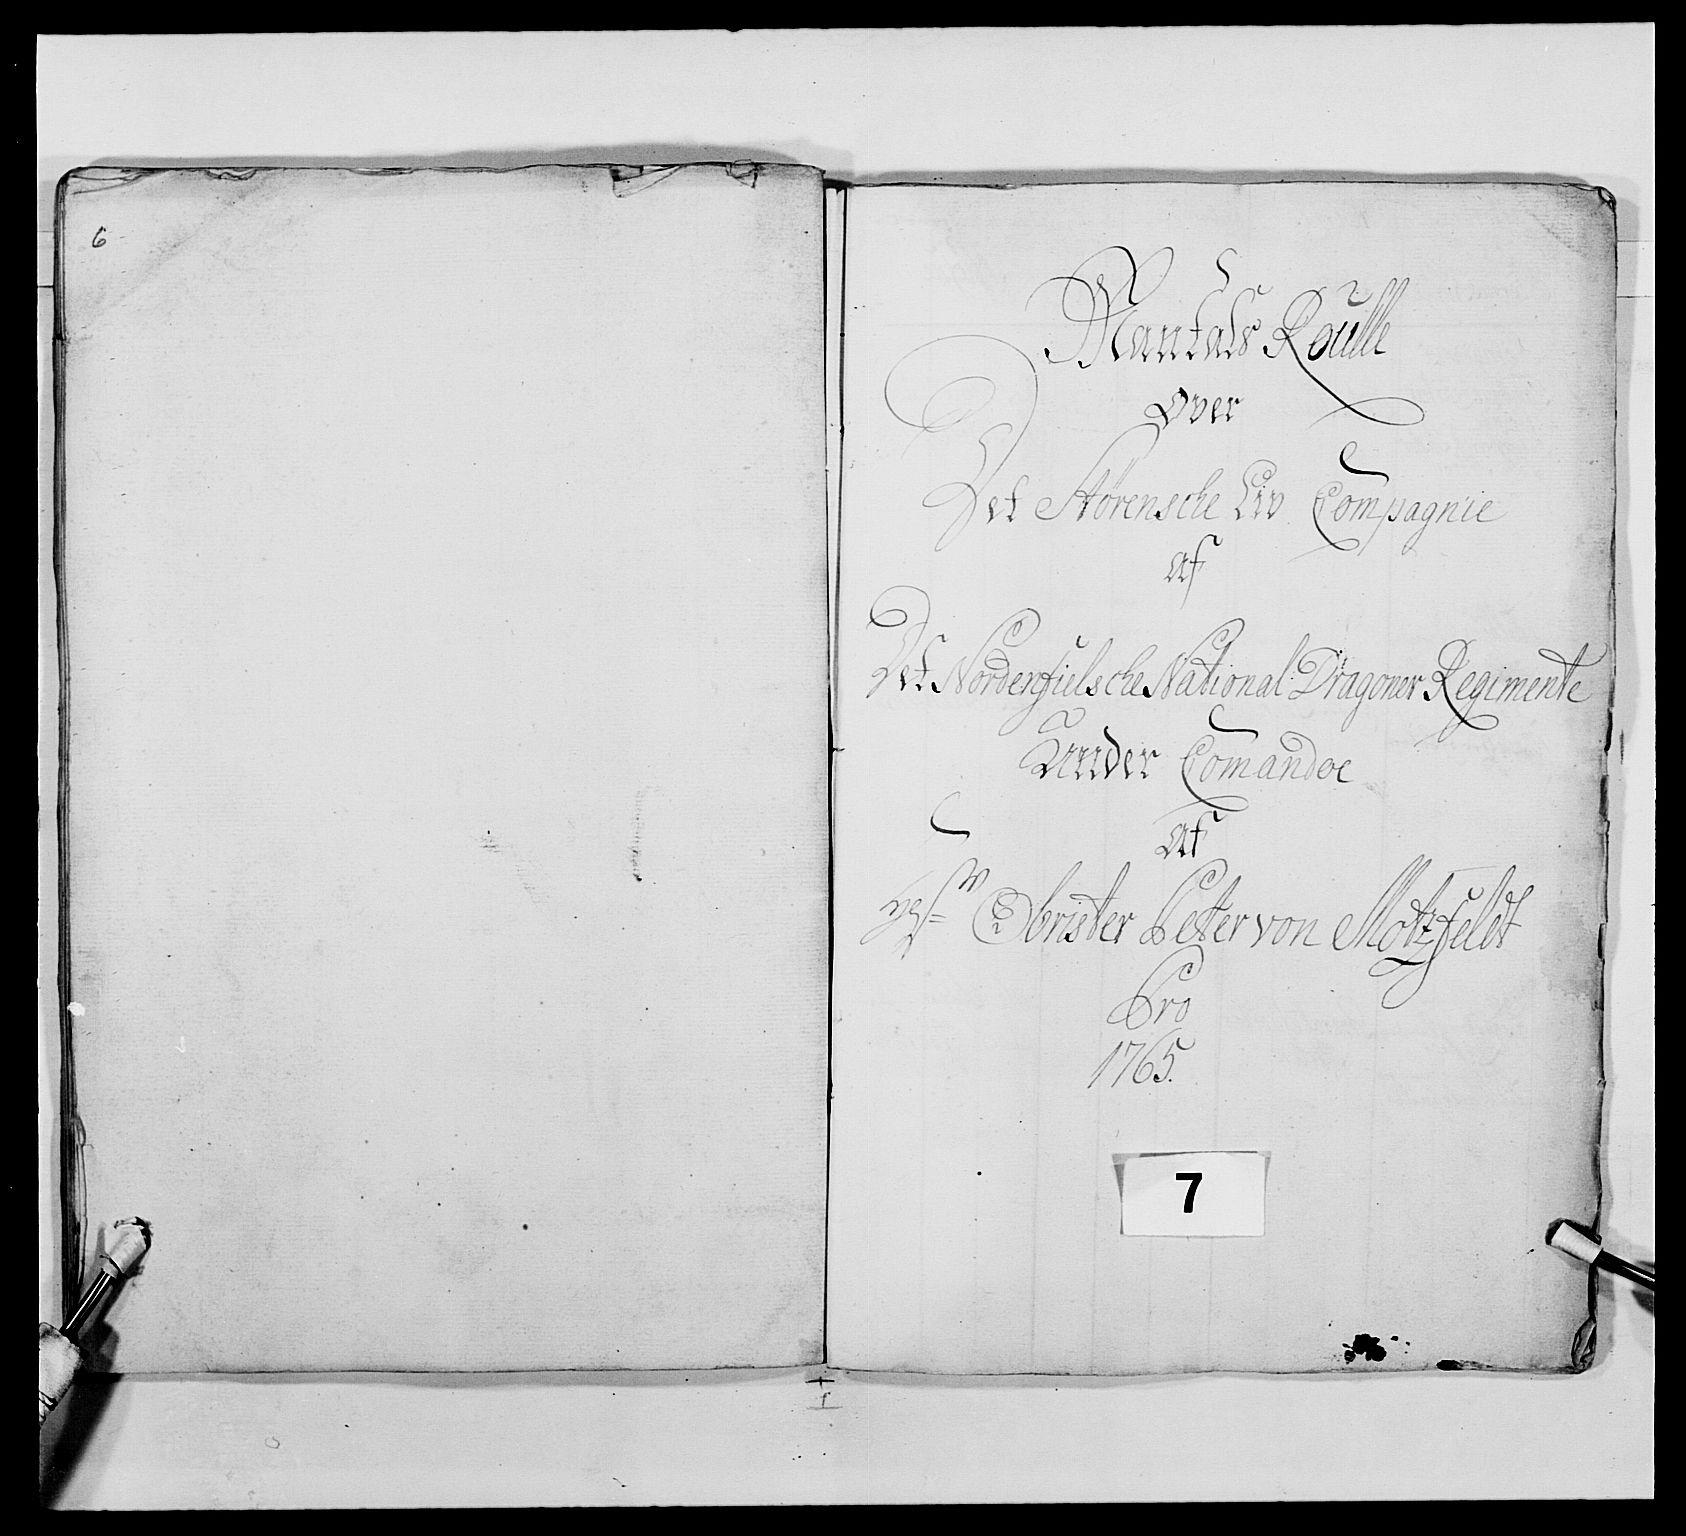 6
Mantals Roulle
Over
Det Størensche Liv Compagnie
af
Det Nordenfielsche National Dragoner Regimente
Under Comandoe
Af
Obrister Peter von Motzfeldt
Pro
1765.
7